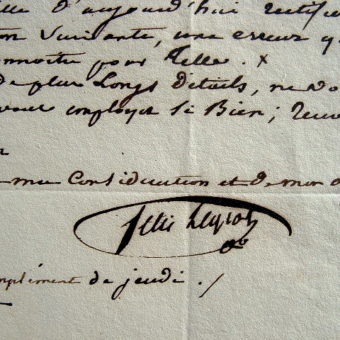 d'aujourd'hui rectifi
on suivante, une erreur q
pour telle . x
de plus Longs Détails, ne vo
vous employer Si Bien ;
ma Considération et de mon
felix
mplément de jeudi . /